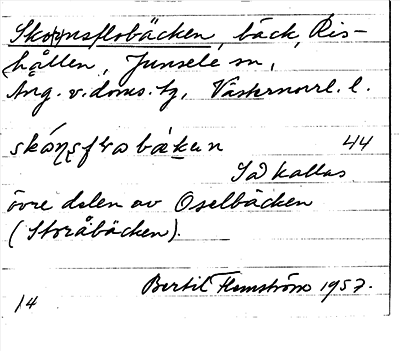 Skornsflobäcken, bäck, Ris-
hållen, Junsele sn,
Ång. v. doms. tg, Västernorrl. l.
bækan 44
Så kallas
övre delen av Oselbäcken
(Storåbäcken).
Bertil Flemström 1957.
14